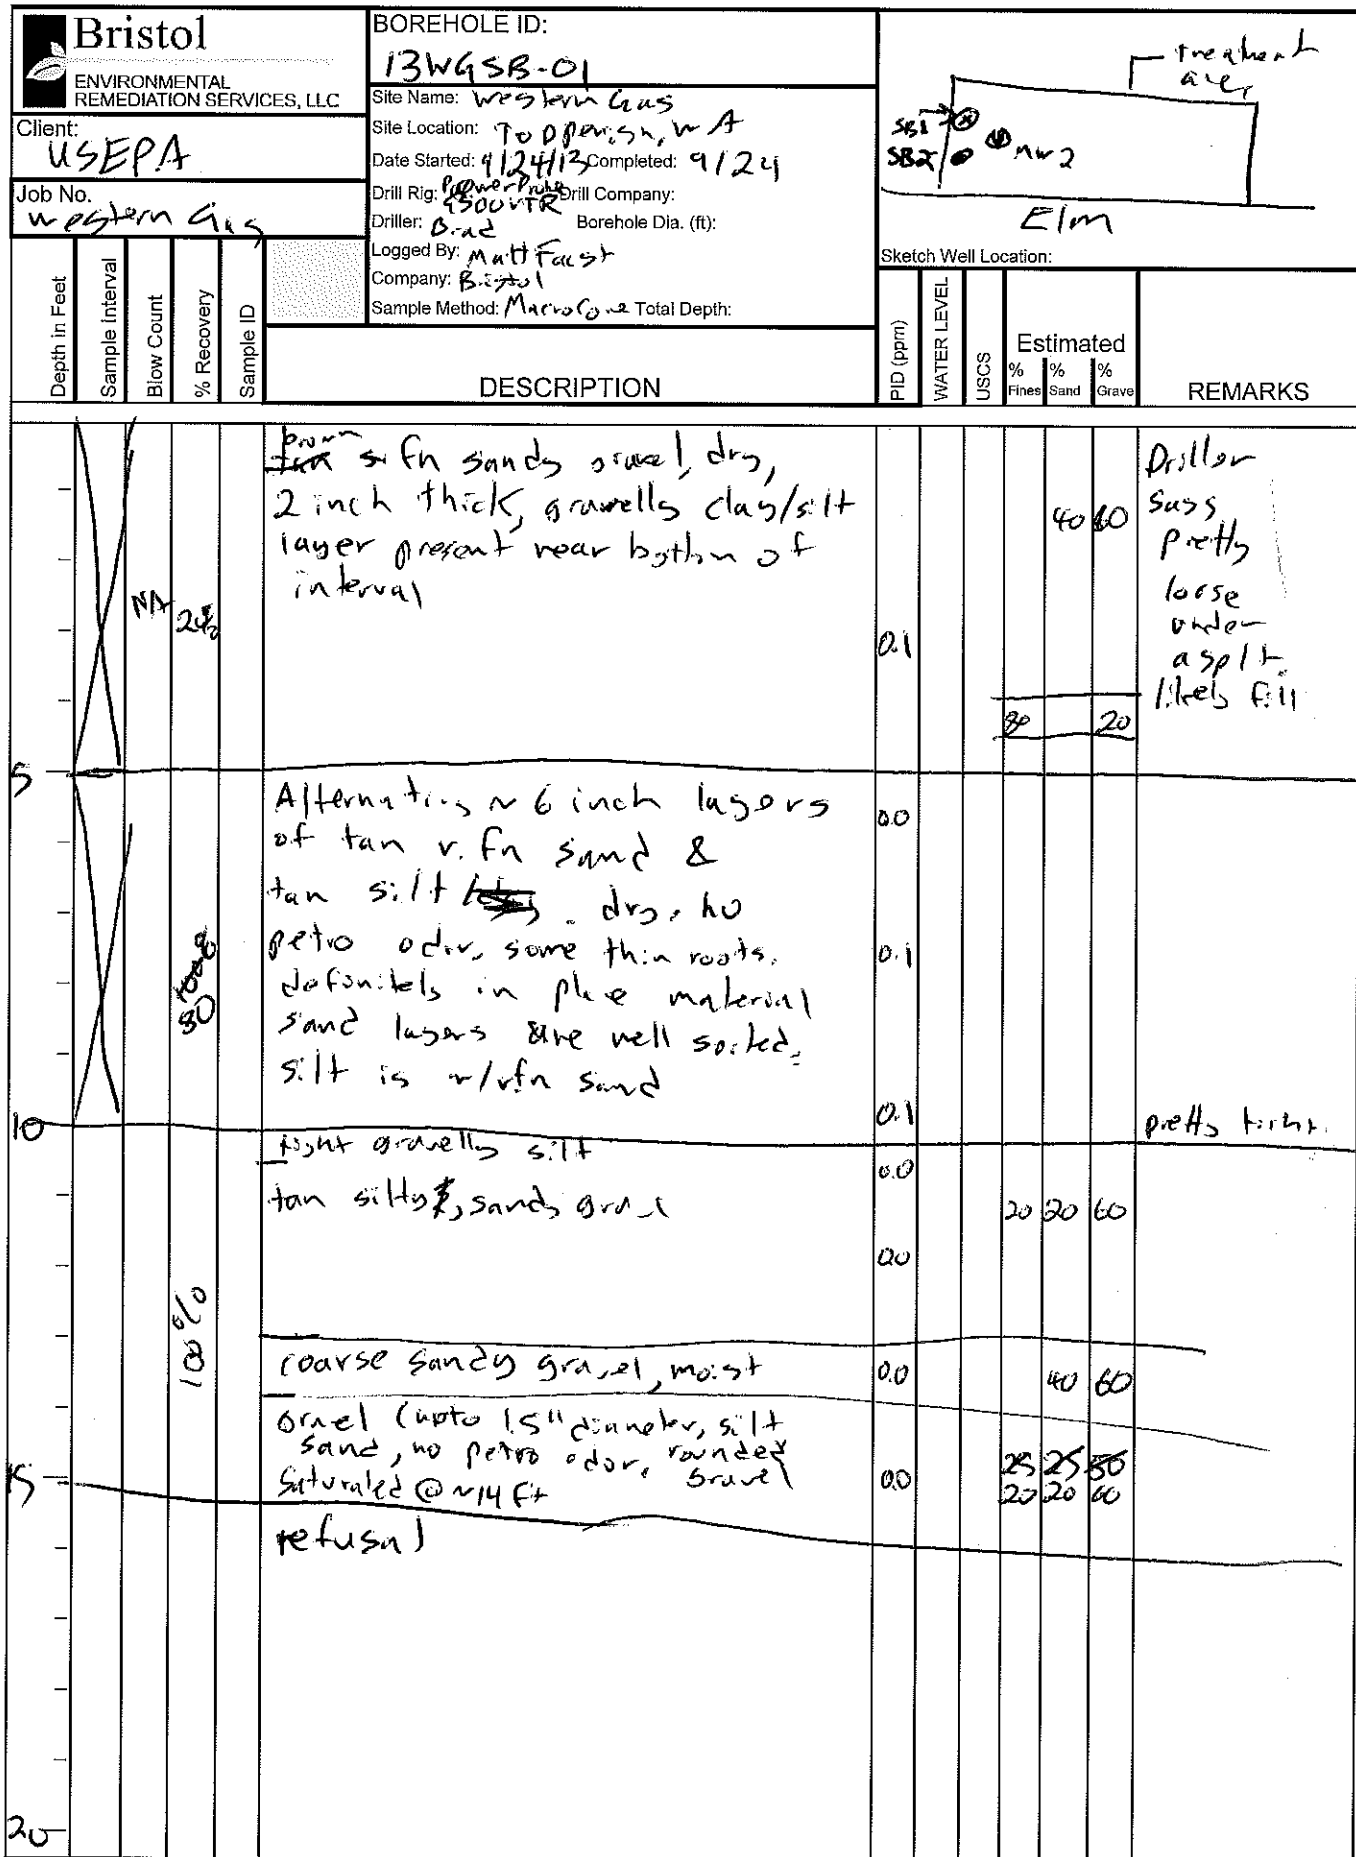 Bristol
ENVIRONMENTAL
REMEDIATION SERVICES, LLC
Client:
USEPA
Job No.
Western Gas
BOREHOLE ID:
13WGSB-01
Site Name: Western Gas
Site Location: Toppenish, WA
Date Started: 9/24/13 Completed: 9/24
Drill Rig: PowerProbe 9500VTR Drill Company:
Driller: Brad Borehole Dia. (ft):
Logged By: Matt Faust
Company: Bristol
Sample Method: MacroCore Total Depth:
treatment
area
SB1
SB2
MW2
Elm
Sketch Well Location:
Depth in Feet
Sample Interval
Blow Count
% Recovery
Sample ID
DESCRIPTION
PID (ppm)
WATER LEVEL
USCS
Estimated
% Fines
% Sand
% Grave
REMARKS
brown
tan fn sandy gravel, dry,
2 inch thick, gravelly clay/silt
layer present near bottom of
interval
NA
0.1
40 60
80 20
Driller
says
pretty
loose
under
asplt.
likely fill
5
Alternating ~ 6 inch layers
of tan v. fn sand &
tan silt. dry. no
petro odor, some thin roots.
definitely in place material
sand layers are well sorted.
silt is w/vfn sand
80
0.0
0.1
0.1
pretty tight.
10
tight gravelly silt
0.0
tan silty, sandy gravel
20 20 60
0.0
100%
coarse sandy gravel, moist
0.0
40 60
gravel (upto 1.5" diameter, silt
sand, no petro odor, rounded
gravel
saturated @ ~14 ft
0.0
25 25 50
20 20 60
15
refusal
20